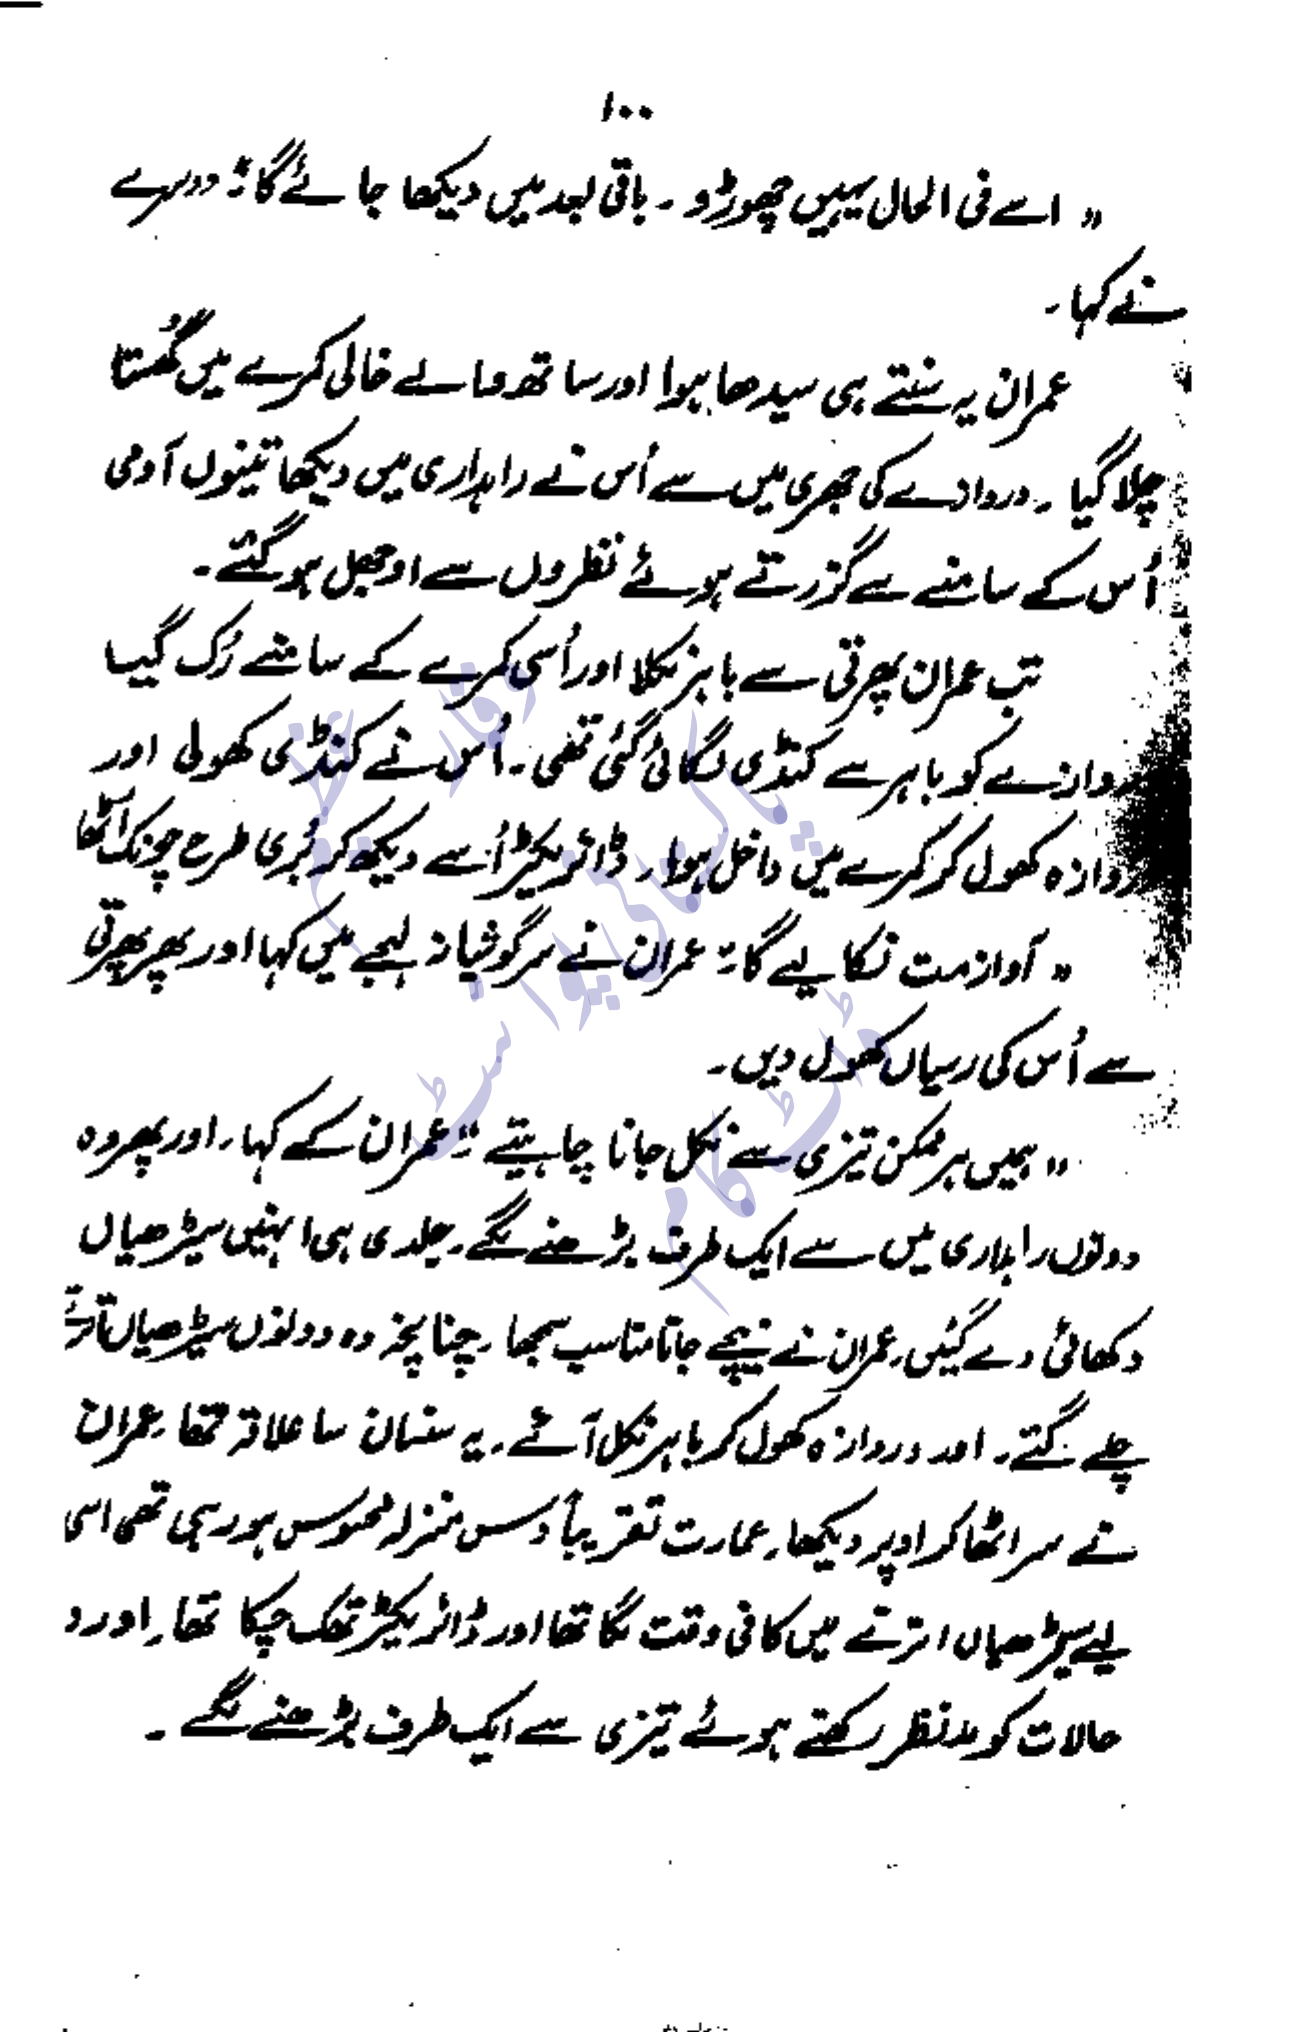 ۱۰۰
" اسے فی الحال یہیں چھوڑو ۔ باقی بعد میں دیکھا جائے گا " دوسرے
نے کہا ۔
عمران یہ سنتے ہی سیدھا ہوا اور ساتھ والے خالی کمرے میں گھُستا
چلا گیا ۔ دروازے کی جھری میں سے اُس نے راہداری میں دیکھا تینوں آدمی
اُس کے سامنے سے گزرتے ہوئے نظروں سے اوجھل ہو گئے ۔
تب عمران پھرتی سے باہر نکلا اور اُسی کمرے کے سامنے رُک گیا
دروازے کو باہر سے کنڈی لگائی گئی تھی ۔ اُس نے کنڈی کھولی اور
دروازہ کھول کر کمرے میں داخل ہوا ۔ ڈائریکٹر اُسے دیکھ کر بُری طرح چونک اُٹھا
" آواز مت نکالیے گا " عمران نے سرگوشیانہ لہجے میں کہا اور پھر پھرتی
سے اُس کی رسیاں کھول دیں ۔
" ہمیں ہر ممکن تیزی سے نکل جانا چاہیئے " عمران کے کہا ۔ اور پھر وہ
دونوں راہداری میں سے ایک طرف بڑھنے لگے ۔ جلدی ہی انہیں سیڑھیاں
دکھائی دے گئیں ۔ عمران نے نیچے جانا مناسب سمجھا ۔ چنانچہ وہ دونوں سیڑھیاں اُترتے
چلے گئے ۔ اور دروازہ کھول کر باہر نکل آئے ۔ یہ سنسان سا علاقہ تھا ۔ عمران
نے سر اٹھا کر اوپر دیکھا ۔ عمارت تقریباً دس منزلہ محسوس ہو رہی تھی اسی
لیے سیڑھیاں اترنے میں کافی وقت لگا تھا اور ڈائریکٹر تھک چکا تھا ۔ اور د
حالات کو مدنظر رکھتے ہوئے تیزی سے ایک طرف بڑھنے لگے ۔
وقار عظیم
پاکستانی پوائنٹ
ڈاٹ کام